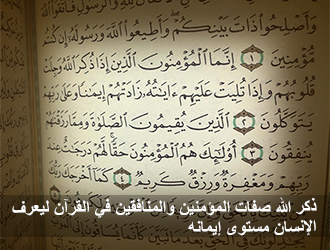 وَأَصْلِحُوا۟ ذَاتَ بَيْنِكُمْ وَأَطِيعُوا۟ ٱللَّهَ وَرَسُولَهُۥٓ إِن كُنتُم
مُّؤْمِنِينَ ١ إِنَّمَا ٱلْمُؤْمِنُونَ ٱلَّذِينَ إِذَا ذُكِرَ ٱللَّهُ وَجِلَتْ
قُلُوبُهُمْ وَإِذَا تُلِيَتْ عَلَيْهِمْ ءَايَٰتُهُۥ زَادَتْهُمْ إِيمَٰنًا وَعَلَىٰ رَبِّهِمْ
يَتَوَكَّلُونَ ٢ ٱلَّذِينَ يُقِيمُونَ ٱلصَّلَوٰةَ وَمِمَّا رَزَقْنَٰهُمْ
يُنفِقُونَ ٣ أُو۟لَٰٓئِكَ هُمُ ٱلْمُؤْمِنُونَ حَقًّا لَّهُمْ دَرَجَٰتٌ عِندَ
رَبِّهِمْ وَمَغْفِرَةٌ وَرِزْقٌ كَرِيمٌ ٤ كَمَآ أَخْرَجَكَ رَبُّكَ
ذكر الله صفات المؤمنين والمنافقين في القرآن ليعرف
الإنسان مستوى إيمانه